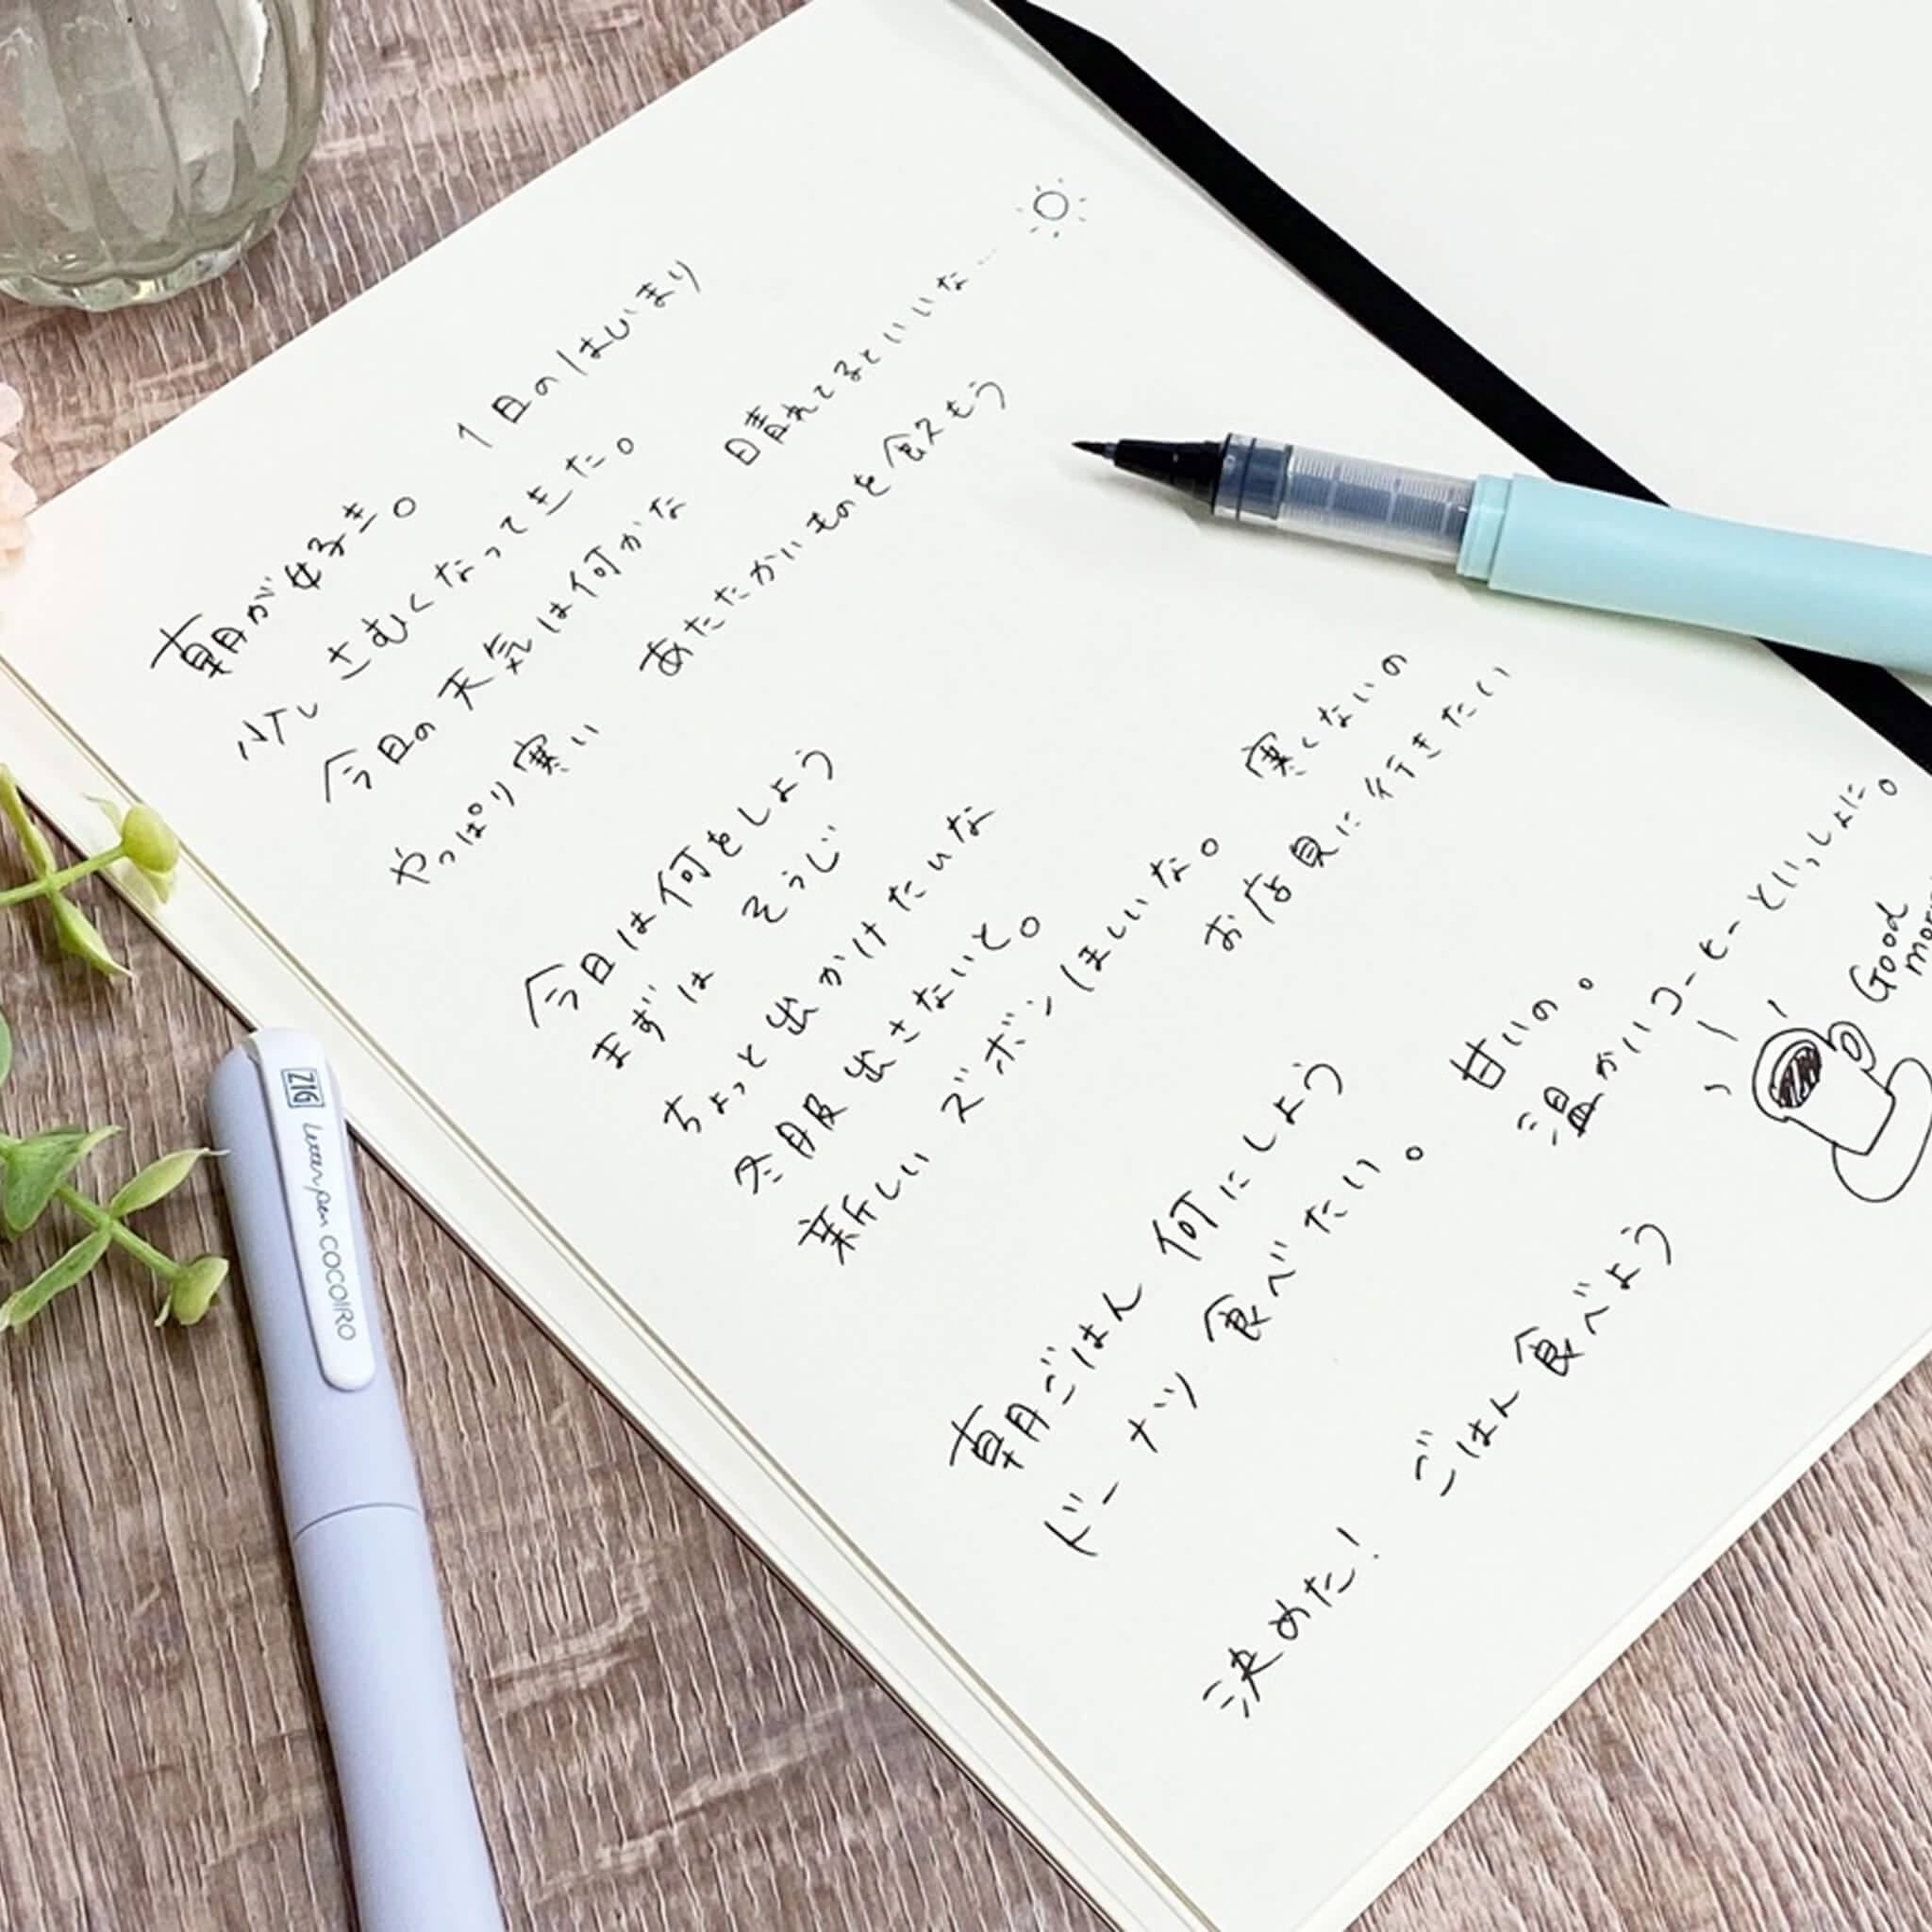 朝が好き。 1日のはじまり
少し さむくなってきた。
今日の天気は何かな 晴れてるといいな…
やっぱり寒い あたたかいものを食えもう
今日は何をしよう
まずは そうじ
ちょっと出かけたいな
冬服出さないと。
新しい ズボンほしいな。 寒くないの
お店見に行きたい
朝ごはん 何にしよう
ドーナツ 食べたい。 甘いの。
温かいコーヒーといっしょに。
Good
決めた! ごはん食べよう
ZIG Letter pen COCOIRO